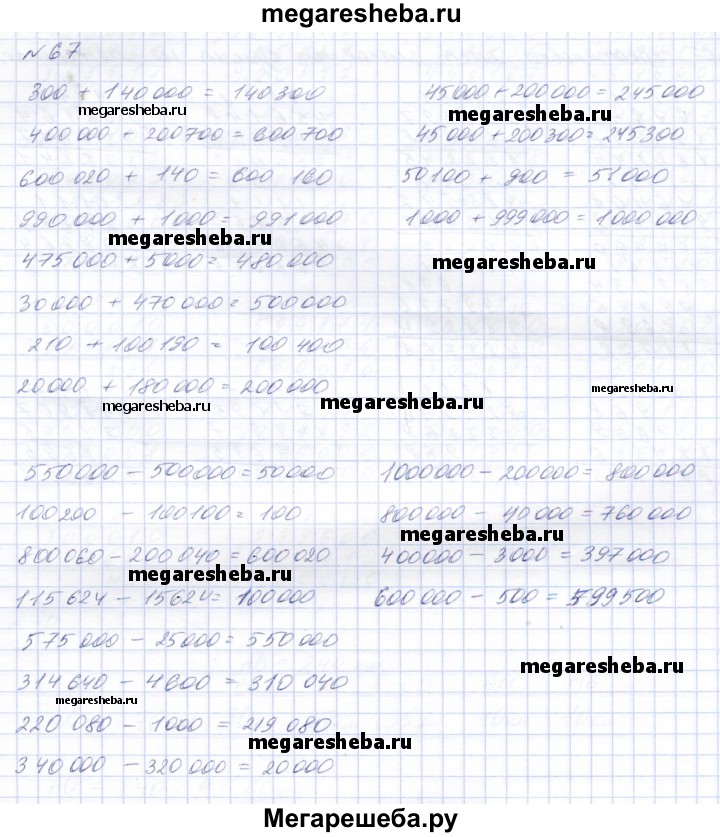 megaresheba.ru
№ 67
300 + 140 000 = 140 300
45 000 + 200 000 = 245 000
megaresheba.ru
megaresheba.ru
400 000 + 200 700 = 600 700
45 000 + 200 300 = 245 300
600 020 + 140 = 600 160
50 100 + 900 = 51 000
990 000 + 1000 = 991 000
1000 + 999 000 = 1000 000
megaresheba.ru
475 000 + 5000 = 480 000
megaresheba.ru
30 000 + 470 000 = 500 000
210 + 100 190 = 100 400
20 000 + 180 000 = 200 000
megaresheba.ru
megaresheba.ru
megaresheba.ru
550 000 - 500 000 = 50 000
1000 000 - 200 000 = 800 000
100 200 - 100 100 = 100
800 000 - 40 000 = 760 000
megaresheba.ru
800 060 - 200 040 = 600 020
400 000 - 3000 = 397 000
megaresheba.ru
115 624 - 15 624 = 100 000
600 000 - 500 = 599 500
575 000 - 25 000 = 550 000
megaresheba.ru
314 640 - 4 600 = 310 040
megaresheba.ru
220 080 - 1000 = 219 080
megaresheba.ru
340 000 - 320 000 = 20 000
Мегарешеба.ру